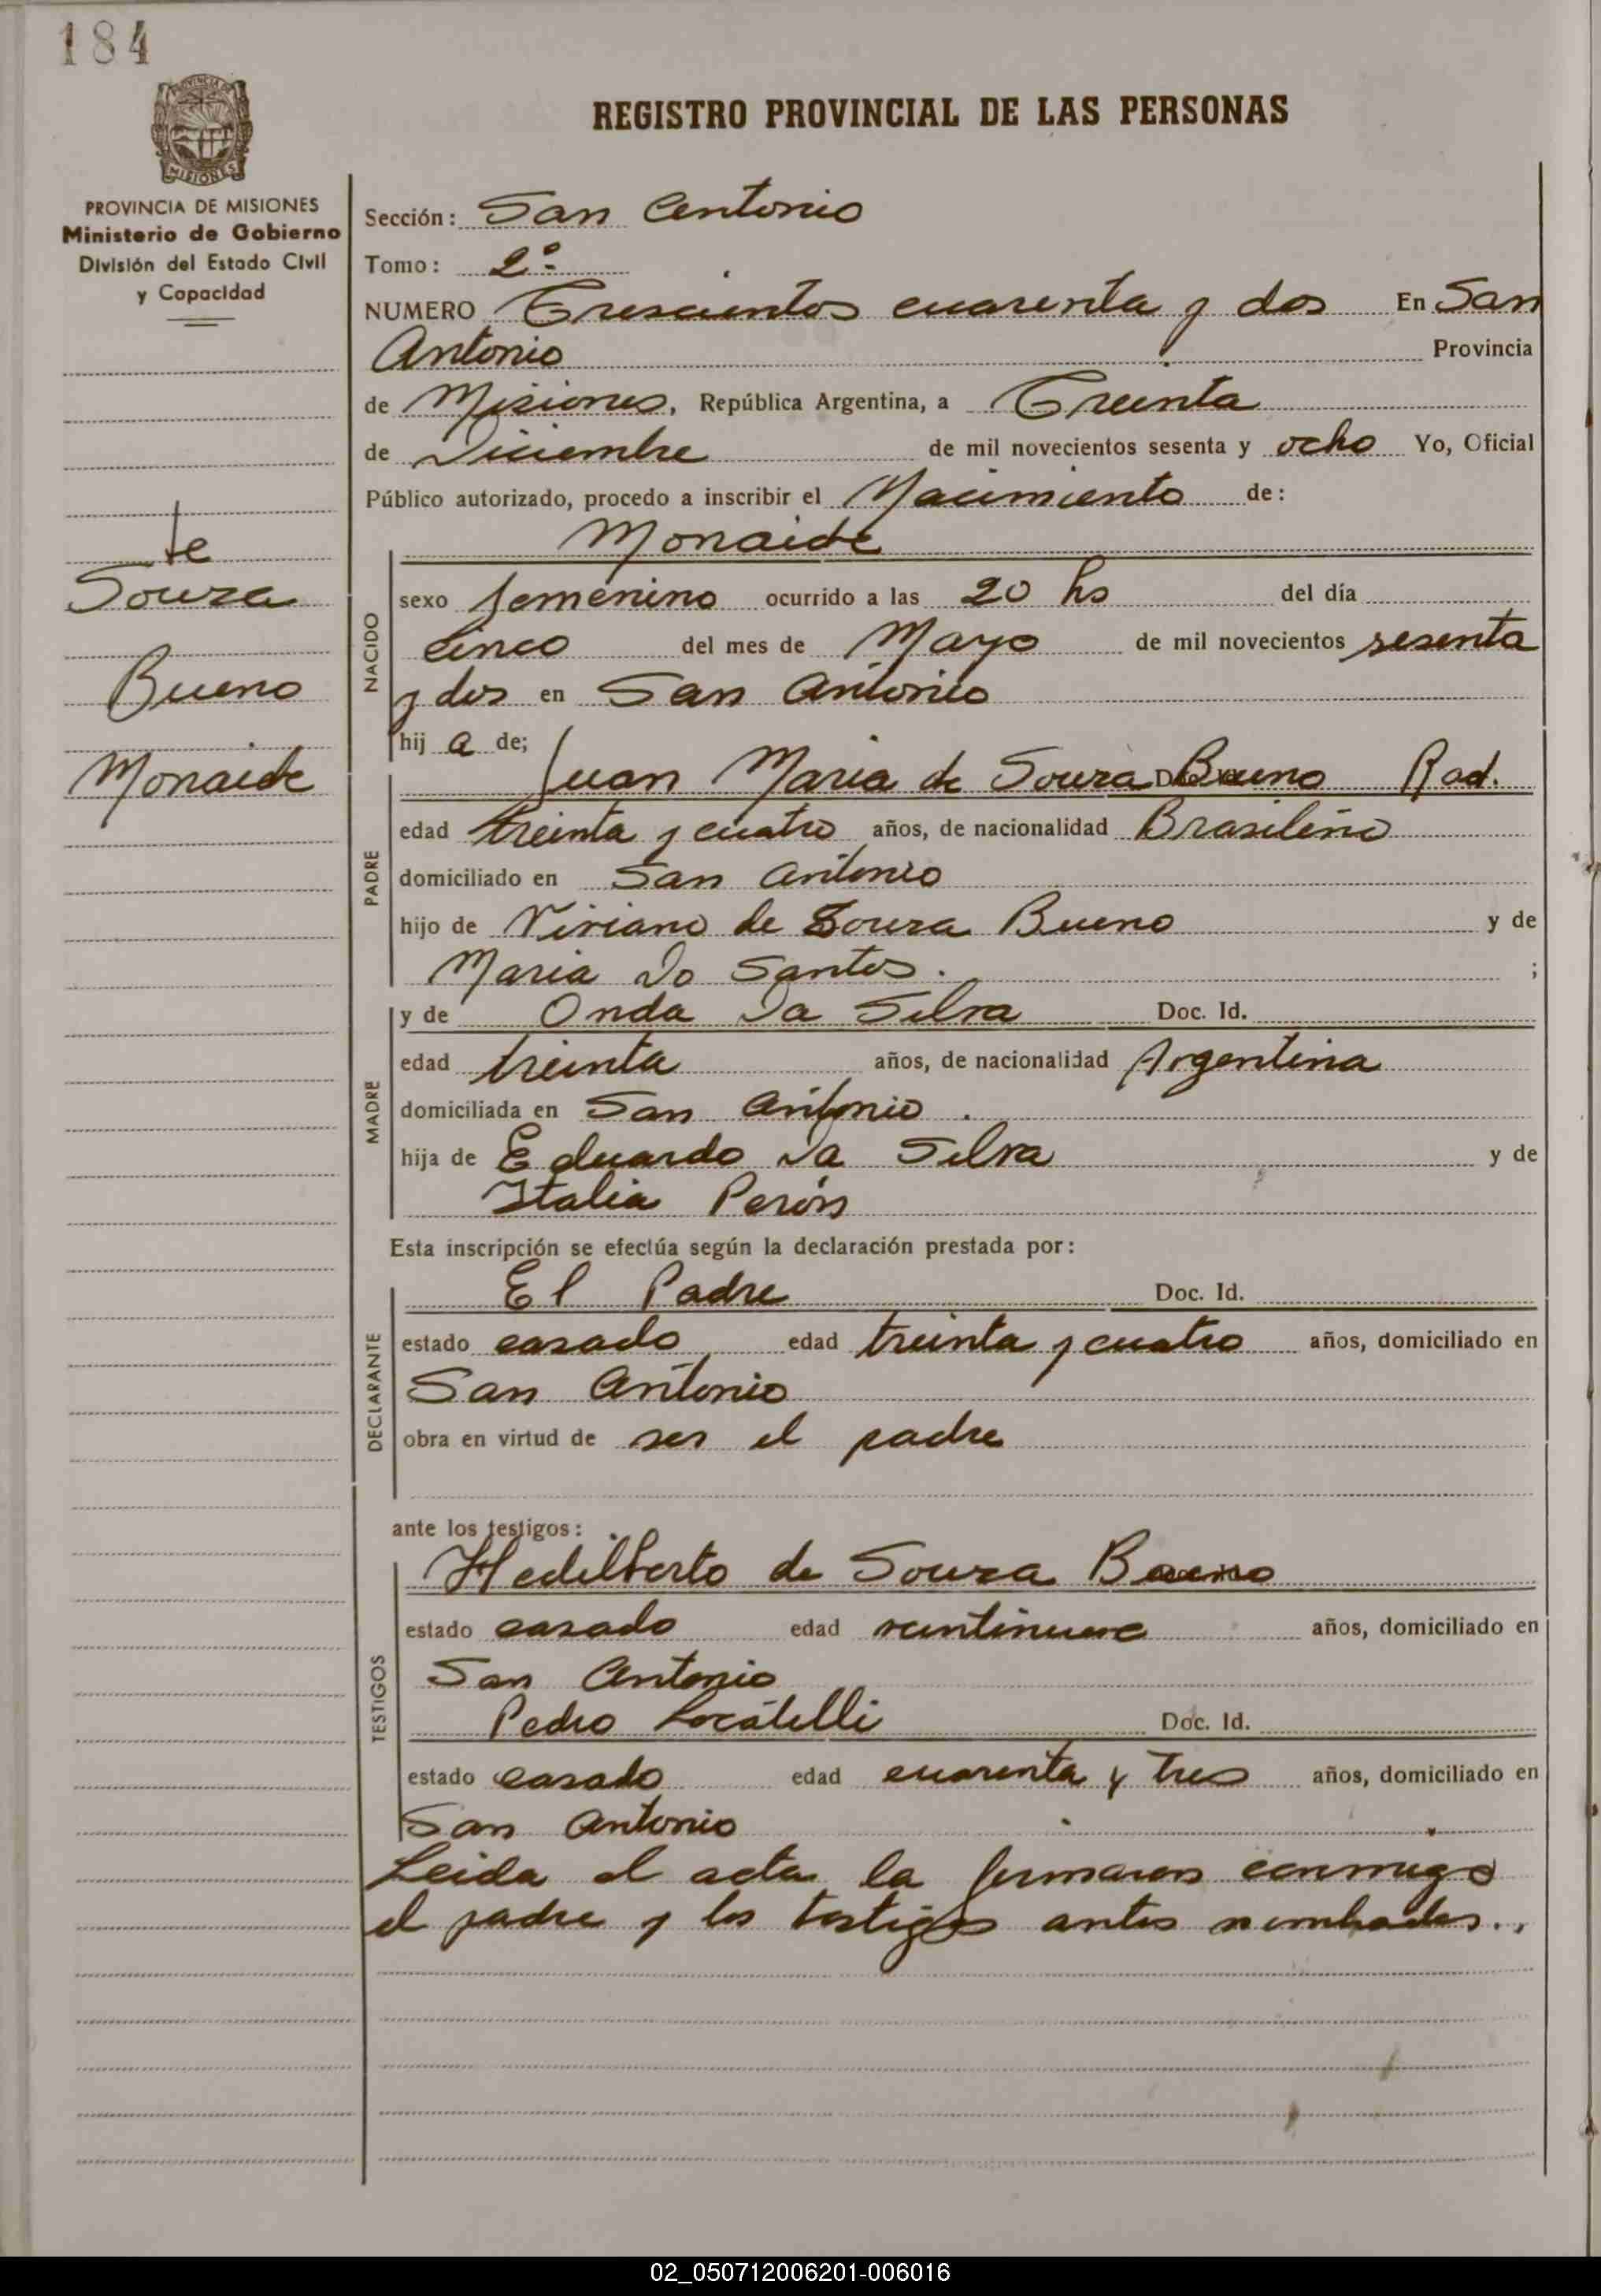 184
PROVINCIA DE MISIONES
Ministerio de Gobierno
División del Estado Civil
y Capacidad
te
Souza
Bueno
Monaide
REGISTRO PROVINCIAL DE LAS PERSONAS
Sección: San Antonio
Tomo: 2º
NUMERO Trescientos cuarenta y dos En San
Antonio Provincia
de Misiones, República Argentina, a Treinta
de Diciembre de mil novecientos sesenta y ocho Yo, Oficial
Público autorizado, procedo a inscribir el Nacimiento de:
Monaide
NACIDO
sexo femenino ocurrido a las 20 hs del día
cinco del mes de Mayo de mil novecientos sesenta
y dos en San Antonio
hij a de;
Juan Maria de Souza Bueno Rad.
PADRE
edad treinta y cuatro años, de nacionalidad Brasileño
domiciliado en San Antonio
hijo de Viviano de Souza Bueno y de
Maria Do Santos. ;
y de Onda Da Silva Doc. Id.
MADRE
edad treinta años, de nacionalidad Argentina
domiciliada en San Antonio.
hija de Eduardo Da Silva y de
Italia Perón
Esta inscripción se efectúa según la declaración prestada por:
El Padre Doc. Id.
DECLARANTE
estado casado edad treinta y cuatro años, domiciliado en
San Antonio
obra en virtud de ser el padre
ante los testigos:
Hedilberto de Souza Bueno
TESTIGOS
estado casado edad veintinueve años, domiciliado en
San Antonio
Pedro Locátelli Doc. Id.
estado casado edad cuarenta y tres años, domiciliado en
San Antonio
Leida el acta la firmaron conmigo
el padre y los testigos antes nombrados..
02_050712006201-006016